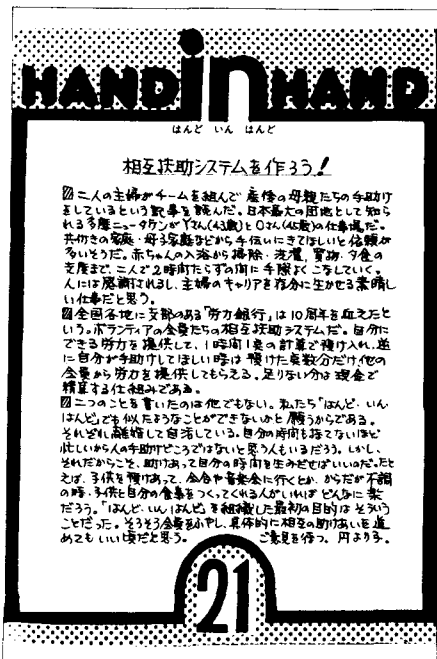 HAND in HAND
はんど いん はんど
相互扶助システムを作ろう！
二人の主婦がチームを組んで 産後の母親たちの手助け
をしているという記事を読んだ。日本最大の団地として知ら
れる多摩ニュータウンがYさん(43歳)とOさん(45歳)の仕事場だ。
共働きの家庭・母子家庭などから手伝いにきてほしいと依頼が
多いそうだ。赤ちゃんの入浴から掃除・洗濯、買物・夕食の
支度まで、二人で2時間たらずの間に手際よくこなしていく。
人には感謝されるし、主婦のキャリアを存分に生かせる素晴し
い仕事だと思う。
全国各地に支部のある「労力銀行」は10周年を迎えたと
いう。ボランティアの会員たちの相互扶助システムだ。自分に
できる労力を提供して、1時間1点の計算で預け入れ、逆
に自分が手助けしてほしい時は預けた点数分だけ他の
会員から労力を提供してもらえる。足りない分は現金で
精算する仕組みである。
二つのことを書いたのは他でもない。私たち「はんど・いん・
はんど」でも似たようなことができないかと願うからである。
それぞれ離婚して自活している。自分の時間も持てないほど
忙しいから人の手助けどころではないと思う人もいるだろう。しかし、
それだからこそ、助けあって自分の時間を生みだせばいいのだ。たと
えば、子供を預けあって、会合や音楽会に行くとか、からだが不調
の時、子供と自分の食事をつくってくれる人がいればどんなに楽
だろう。「はんど・いん・はんど」を組織した最初の目的はそういう
ことだった。そろそろ会員をふやし、具体的に相互の助けあいを進
めてもいい頃だと思う。 ご意見を待つ。円より子。
21